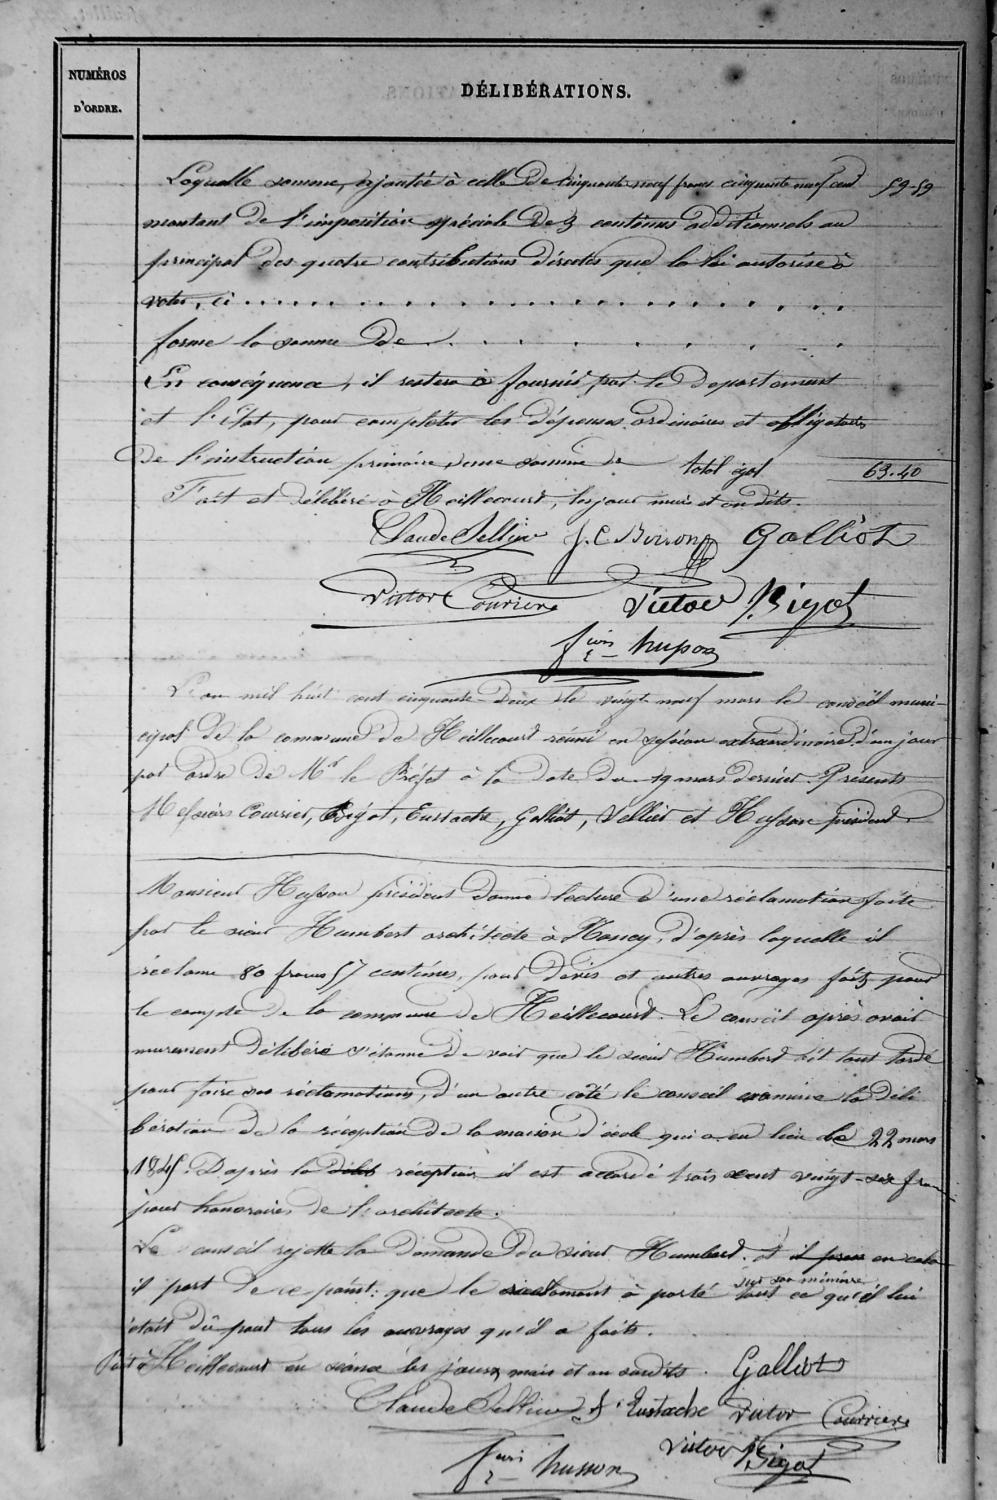 NUMÉROS
D'ORDRE.
DÉLIBÉRATIONS.
Laquelle somme, ajoutée à celle de cinquante neuf francs cinquante neuf cent 59-59
montant de l'imposition spéciale de 3 centimes additionnels au
principal des quatre contributions directes que la loi autorise à
voter, ci . . . . . . . . . . . . . . . . . . . .
forme la somme de . . . . . . . . .
En conséquence, il restera à fournir par le département
et l'État, pour compléter les dépenses ordinaires et obligatoires
de l'instruction primaire, une somme de total égal 63.40
Fait et délibéré à Heillecourt, les jour mois et an dits.
Claude Sellier J. C. Boisson Galliot
Victor Courrier Victor Bigot
Husson
L'an mil huit cent cinquante deux le vingt neuf mars le conseil muni-
cipal de la commune de Heillecourt réuni en session extraordinaire d'un jour
par ordre de Mr le Préfet à la date du 19 mars dernier. Présents
Messieurs Courrier, Bigot, Eustache, Galliot, Sellier et Husson président.
Monsieur Husson président donne lecture d'une réclamation faite
par le sieur Humbert architecte à Nancy, d'après laquelle il
réclame 80 francs 57 centimes, pour devis et autres ouvrages faits pour
le compte de la commune de Heillecourt. Le conseil après avoir
murement délibéré s'étonne de voir que le sieur Humbert ait tant tardé
pour faire ses réclamations, d'un autre côté le conseil examine la déli
bération de la réception de la maison d'école qui a eu lieu le 22 mars
1845. D'après la délib réception il est accordé trois cent vingt-six francs
pour honoraires de l'architecte.
Le conseil rejette la demande du sieur Humbert. et il pren en cela
il part de ce point: que le réclamant à porté sur son mémoire tout ce qu'il lui
était dû pour tous les ouvrages qu'il a faits.
Fait à Heillecourt en séance les jours, mois et an susdits. Galliot
Claude Sellier J. Eustache Victor Courrier
Victor Bigot
Husson